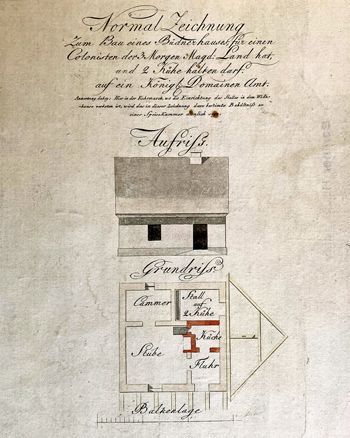 Normal Zeichnung
Zum Bau eines Büdnerhauses für einen
Colonisten der 3 Morgen Magd: Land hat,
und 2 Kühe halten darf.
auf ein Königl. Domainen Amt.
Hier in der Uckermarck, wo die Einrichtung des Stalles in den Wohn-
hause verboten ist, wird das in dieser Zeichnung dazu bestimte
einer Speise Kammer
Aufriss.
Grundriss
Cammer
Stall
auf
2 Kühe
Küche
Stube
Fluhr
Balkenlage